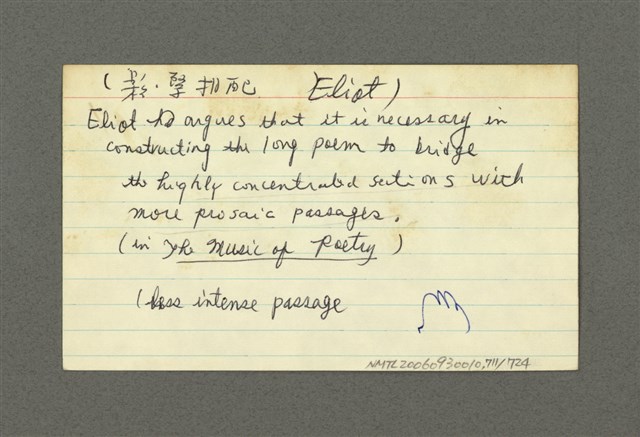 (影.擊拍配 Eliot)
Eliot argues that it is necessary in
constructing the long poem to bridge
the highly concentrated sections with
more prosaic passages.
(in The Music of Poetry)
(less intense passage
NMTL20060930010.711/724